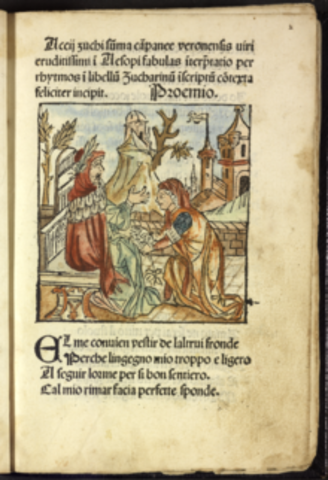 Accij zuchi sũma cãpanee veronensis uiri
eruditissimi ĩ Aesopi fabulas ĩterp̃tatio per
rhythmos ĩ libellũ Zucharinũ ĩscriptũ cõtexta
feliciter incipit. Proemio.
EL me conuien vestir de lalrrui fronde
Perche lingegno mio troppo e ligero
A seguir lorme per si bon sentiero.
Cal mio rimar facia perfette sponde.